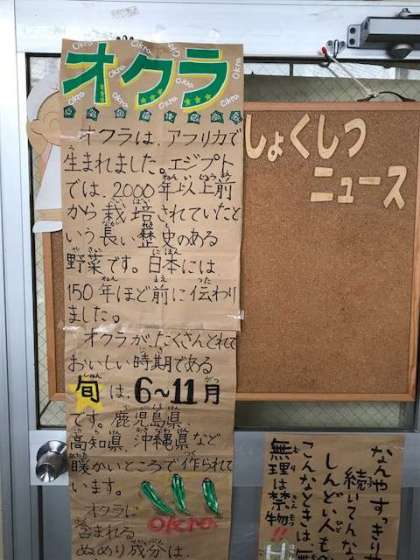 オクラ
オクラは、アフリカで
生まれました。エジプト
では、2000年以上前
から栽培されていたと
いう長い歴史のある
野菜です。日本には
150年ほど前に伝わり
ました。
オクラがたくさんとれて
おいしい時期である
旬は、6～11月
です。鹿児島県、
高知県、沖縄県など
暖かいところで作られて
います。
オクラに
含まれる
ぬめり成分は、
okro
しょくしつ
ニュース
なんやすっきり
続いてんな
しんどい人も
こんなときは
無理は禁物!!